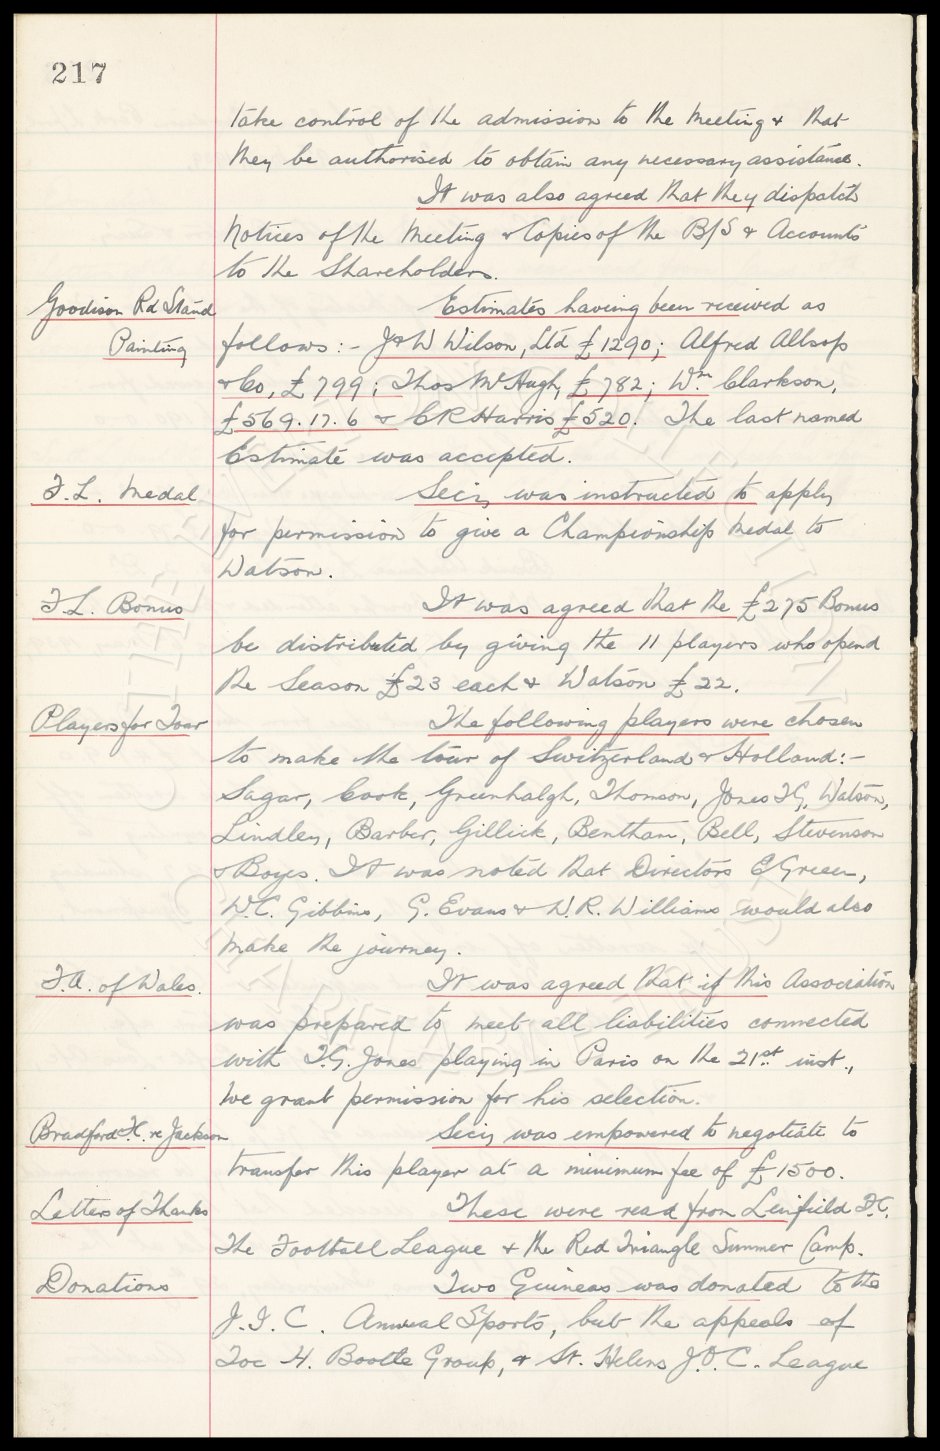 217
take control of the admission to the meeting & that
they be authorised to obtain any necessary assistance.
It was also agreed that they dispatch
Notices of the Meeting & Copies of the B/S & Accounts
to the Shareholders.
Goodison Rd Stand Estimates having been received as
Painting follows:- J & W Wilson, Ltd £1290; Alfred Allsop
& Co, £799; Thos McHugh, £782; Wm Clarkson,
£569.17.6 & C R Harris £520. The last named
Estimate was accepted.
F.L. Medal Secy was instructed to apply
for permission to give a Championship Medal to
Watson.
F.L. Bonus It was agreed that the £275 Bonus
be distributed by giving the 11 players who opend
the Season £23 each & Watson £22.
Players for Tour The following players were chosen
to make the tour of Switzerland & Holland:-
Sagar, Cook, Greenhalgh, Thomson, Jones TG, Watson,
Lindley, Barber, Gillick, Bentham, Bell, Stevenson
& Boyes. It was noted that Directors E Green,
W.C. Gibbins, G. Evans & W.R. Williams would also
make the journey.
F.A. of Wales. It was agreed that if this Association
was prepared to meet all liabilities connected
with T.G. Jones playing in Paris on the 21st inst.,
we grant permission for his selection.
Bradford F.C. re Jackson Secy was empowered to negotiate to
transfer this player at a minimum fee of £1500.
Letters of Thanks These were read from Linfield F.C.
The Football League & the Red Triangle Summer Camp.
Donations Two Guineas was donated to the
J.I.C. Annual Sports, but the appeals of
Toc H. Bootle Group, & St. Helens J.O.C. League